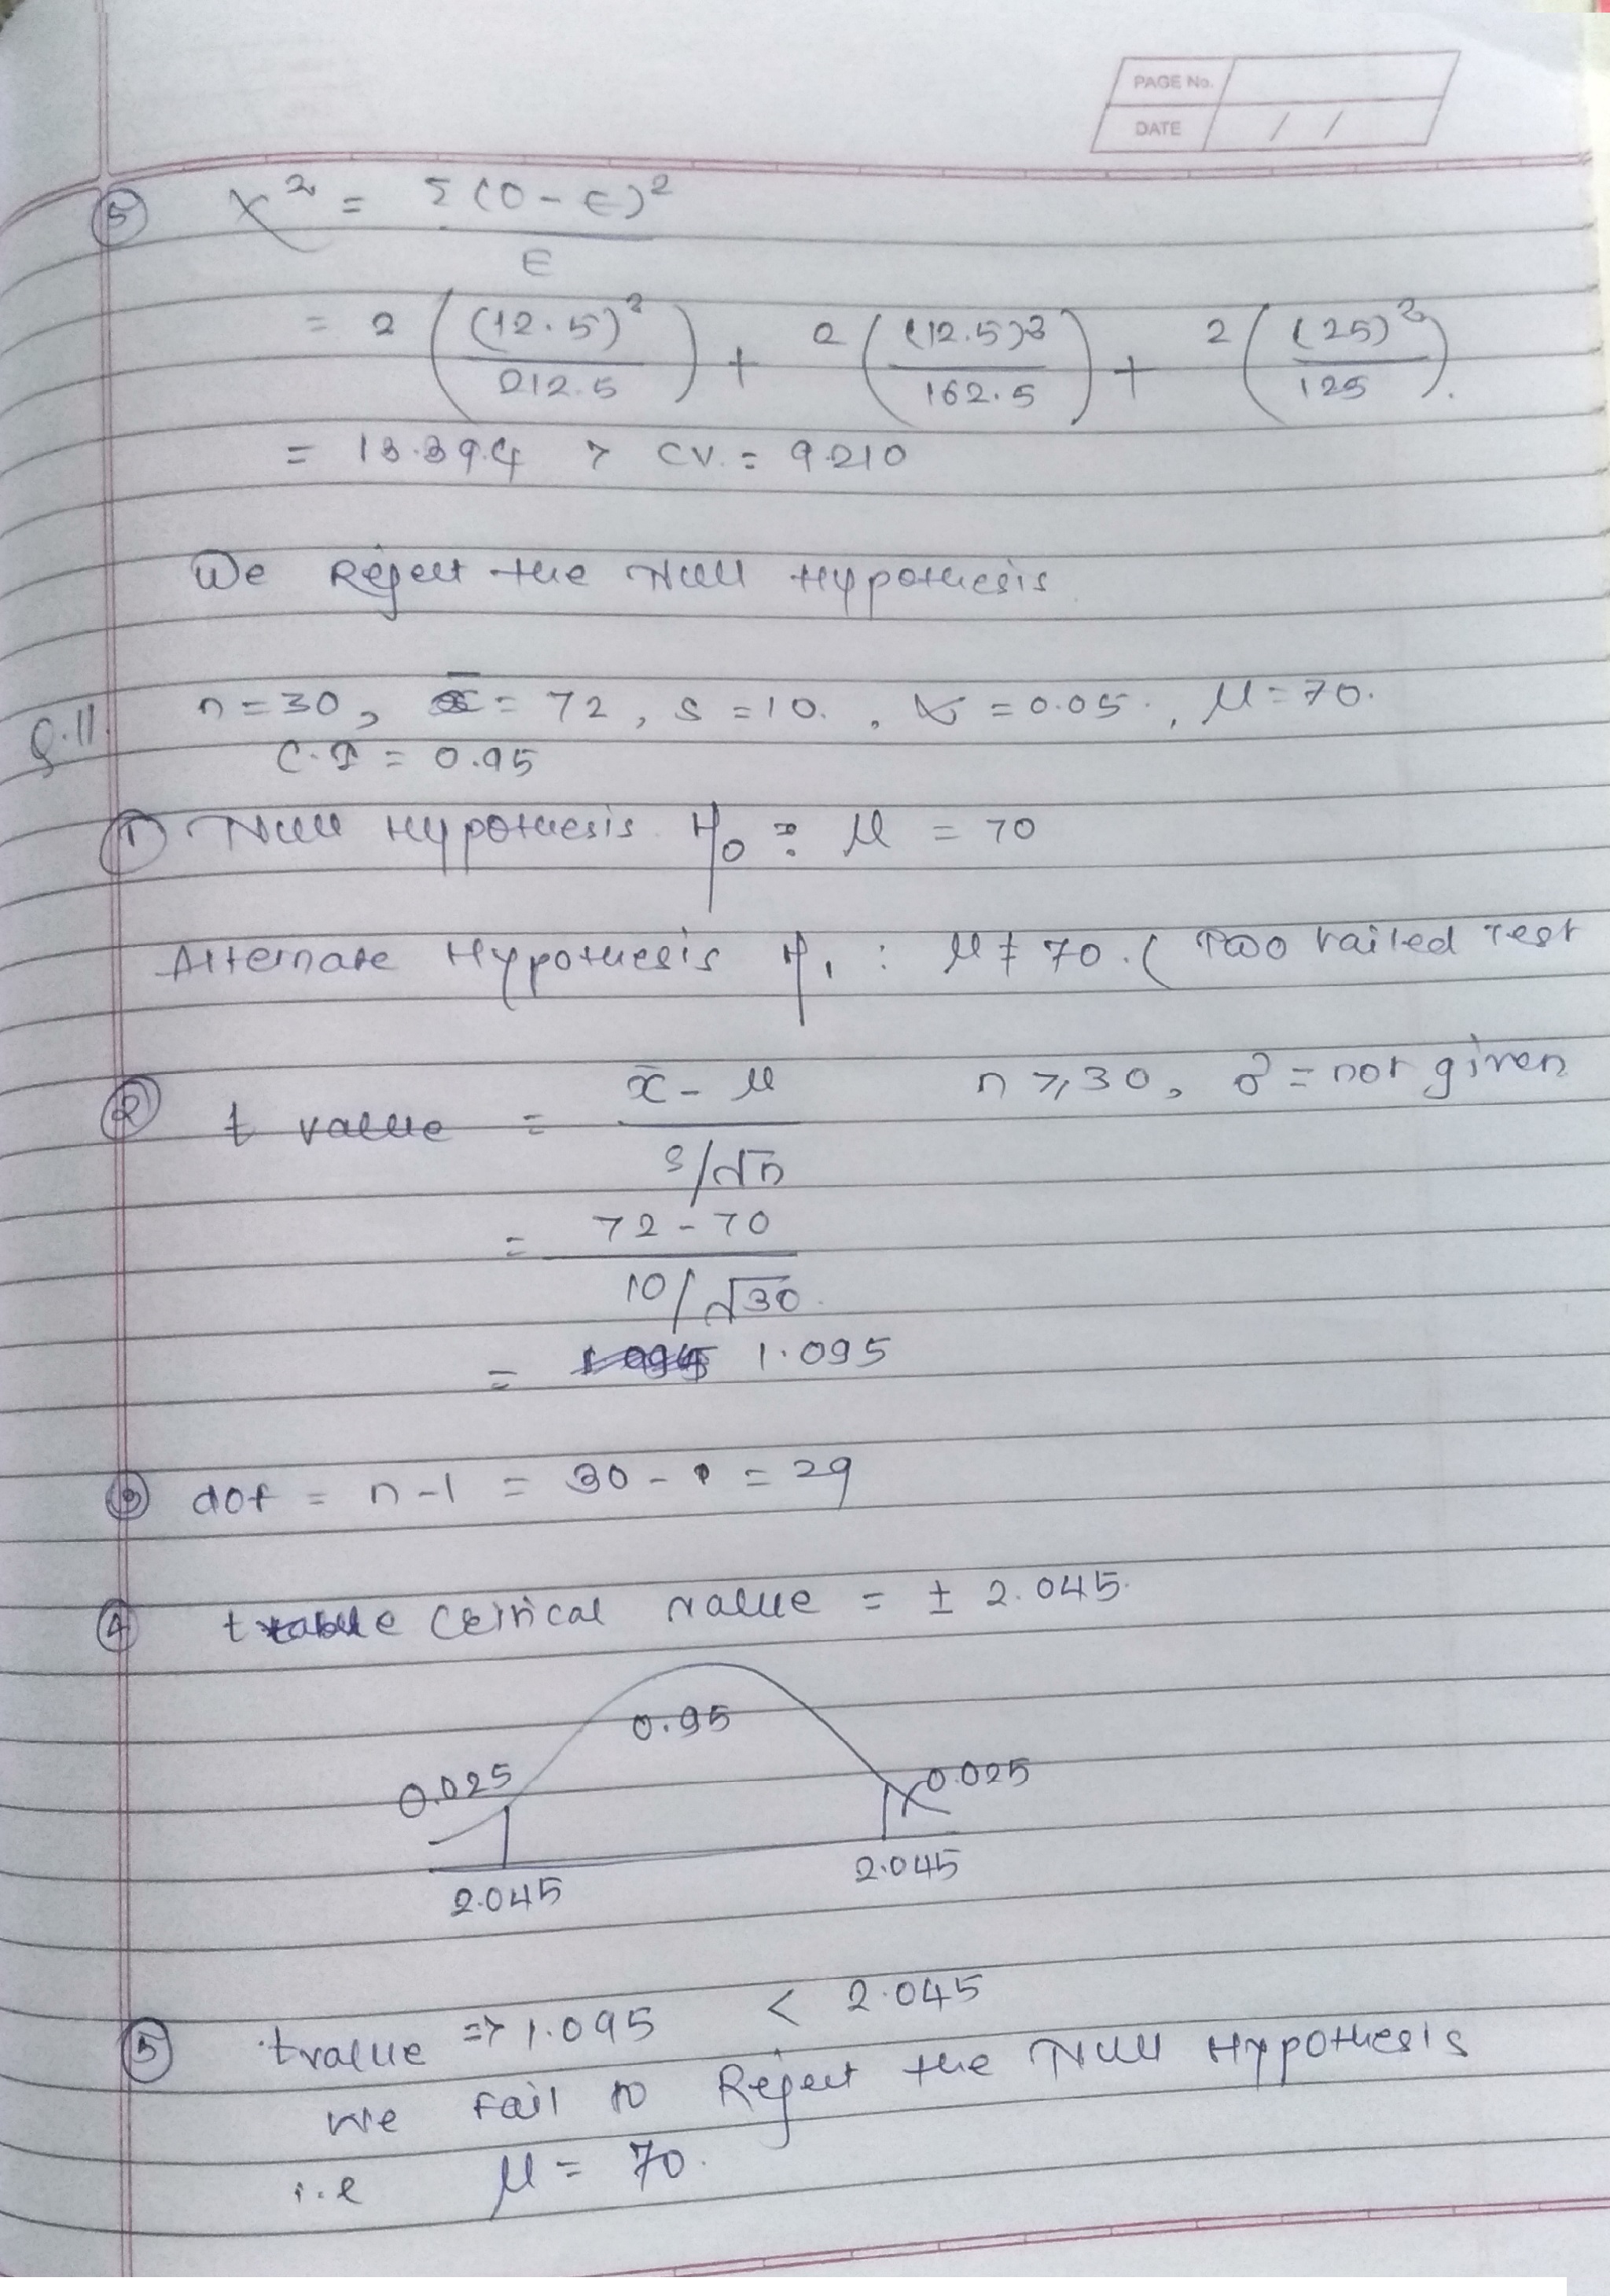 PAGE No.
DATE / /
⑤ χ² = Σ(O-E)² / E
= 2((12.5)² / 212.5) + 2((12.5)² / 162.5) + 2((25)² / 125).
= 13.394 > CV. = 9.210
We Reject the Null Hypothesis
Q.11. n = 30, x̄ = 72, s = 10. , α = 0.05. , μ = 70.
C.I = 0.95
① Null Hypothesis H₀ : μ = 70
Alternate Hypothesis H₁ : μ ≠ 70. ( Two tailed Test
② t value = x̄ - μ / s/√n n ≥ 30, σ = not given
= 72 - 70 / 10/√30.
= 1.095
③ dof = n-1 = 30 - 1 = 29
④ t table Critical value = ± 2.045.
0.95
0.025 0.025
2.045 2.045
⑤ t value => 1.095 < 2.045
We fail to Reject the Null Hypothesis
i.e μ = 70.